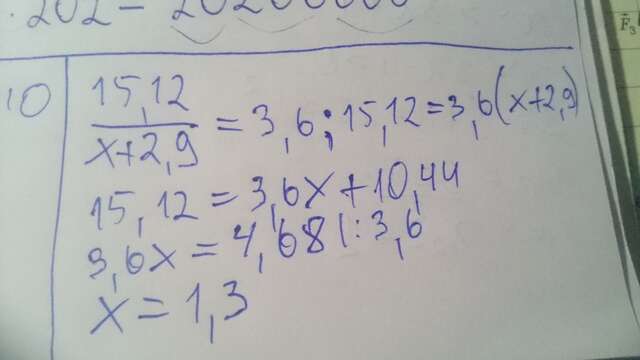 202 - 20200000
10
15,12
x+2,9 = 3,6; 15,12 = 3,6(x+2,9)
15,12 = 3,6x+10,44
3,6x = 4,68 |: 3,6
x = 1,3
F₃